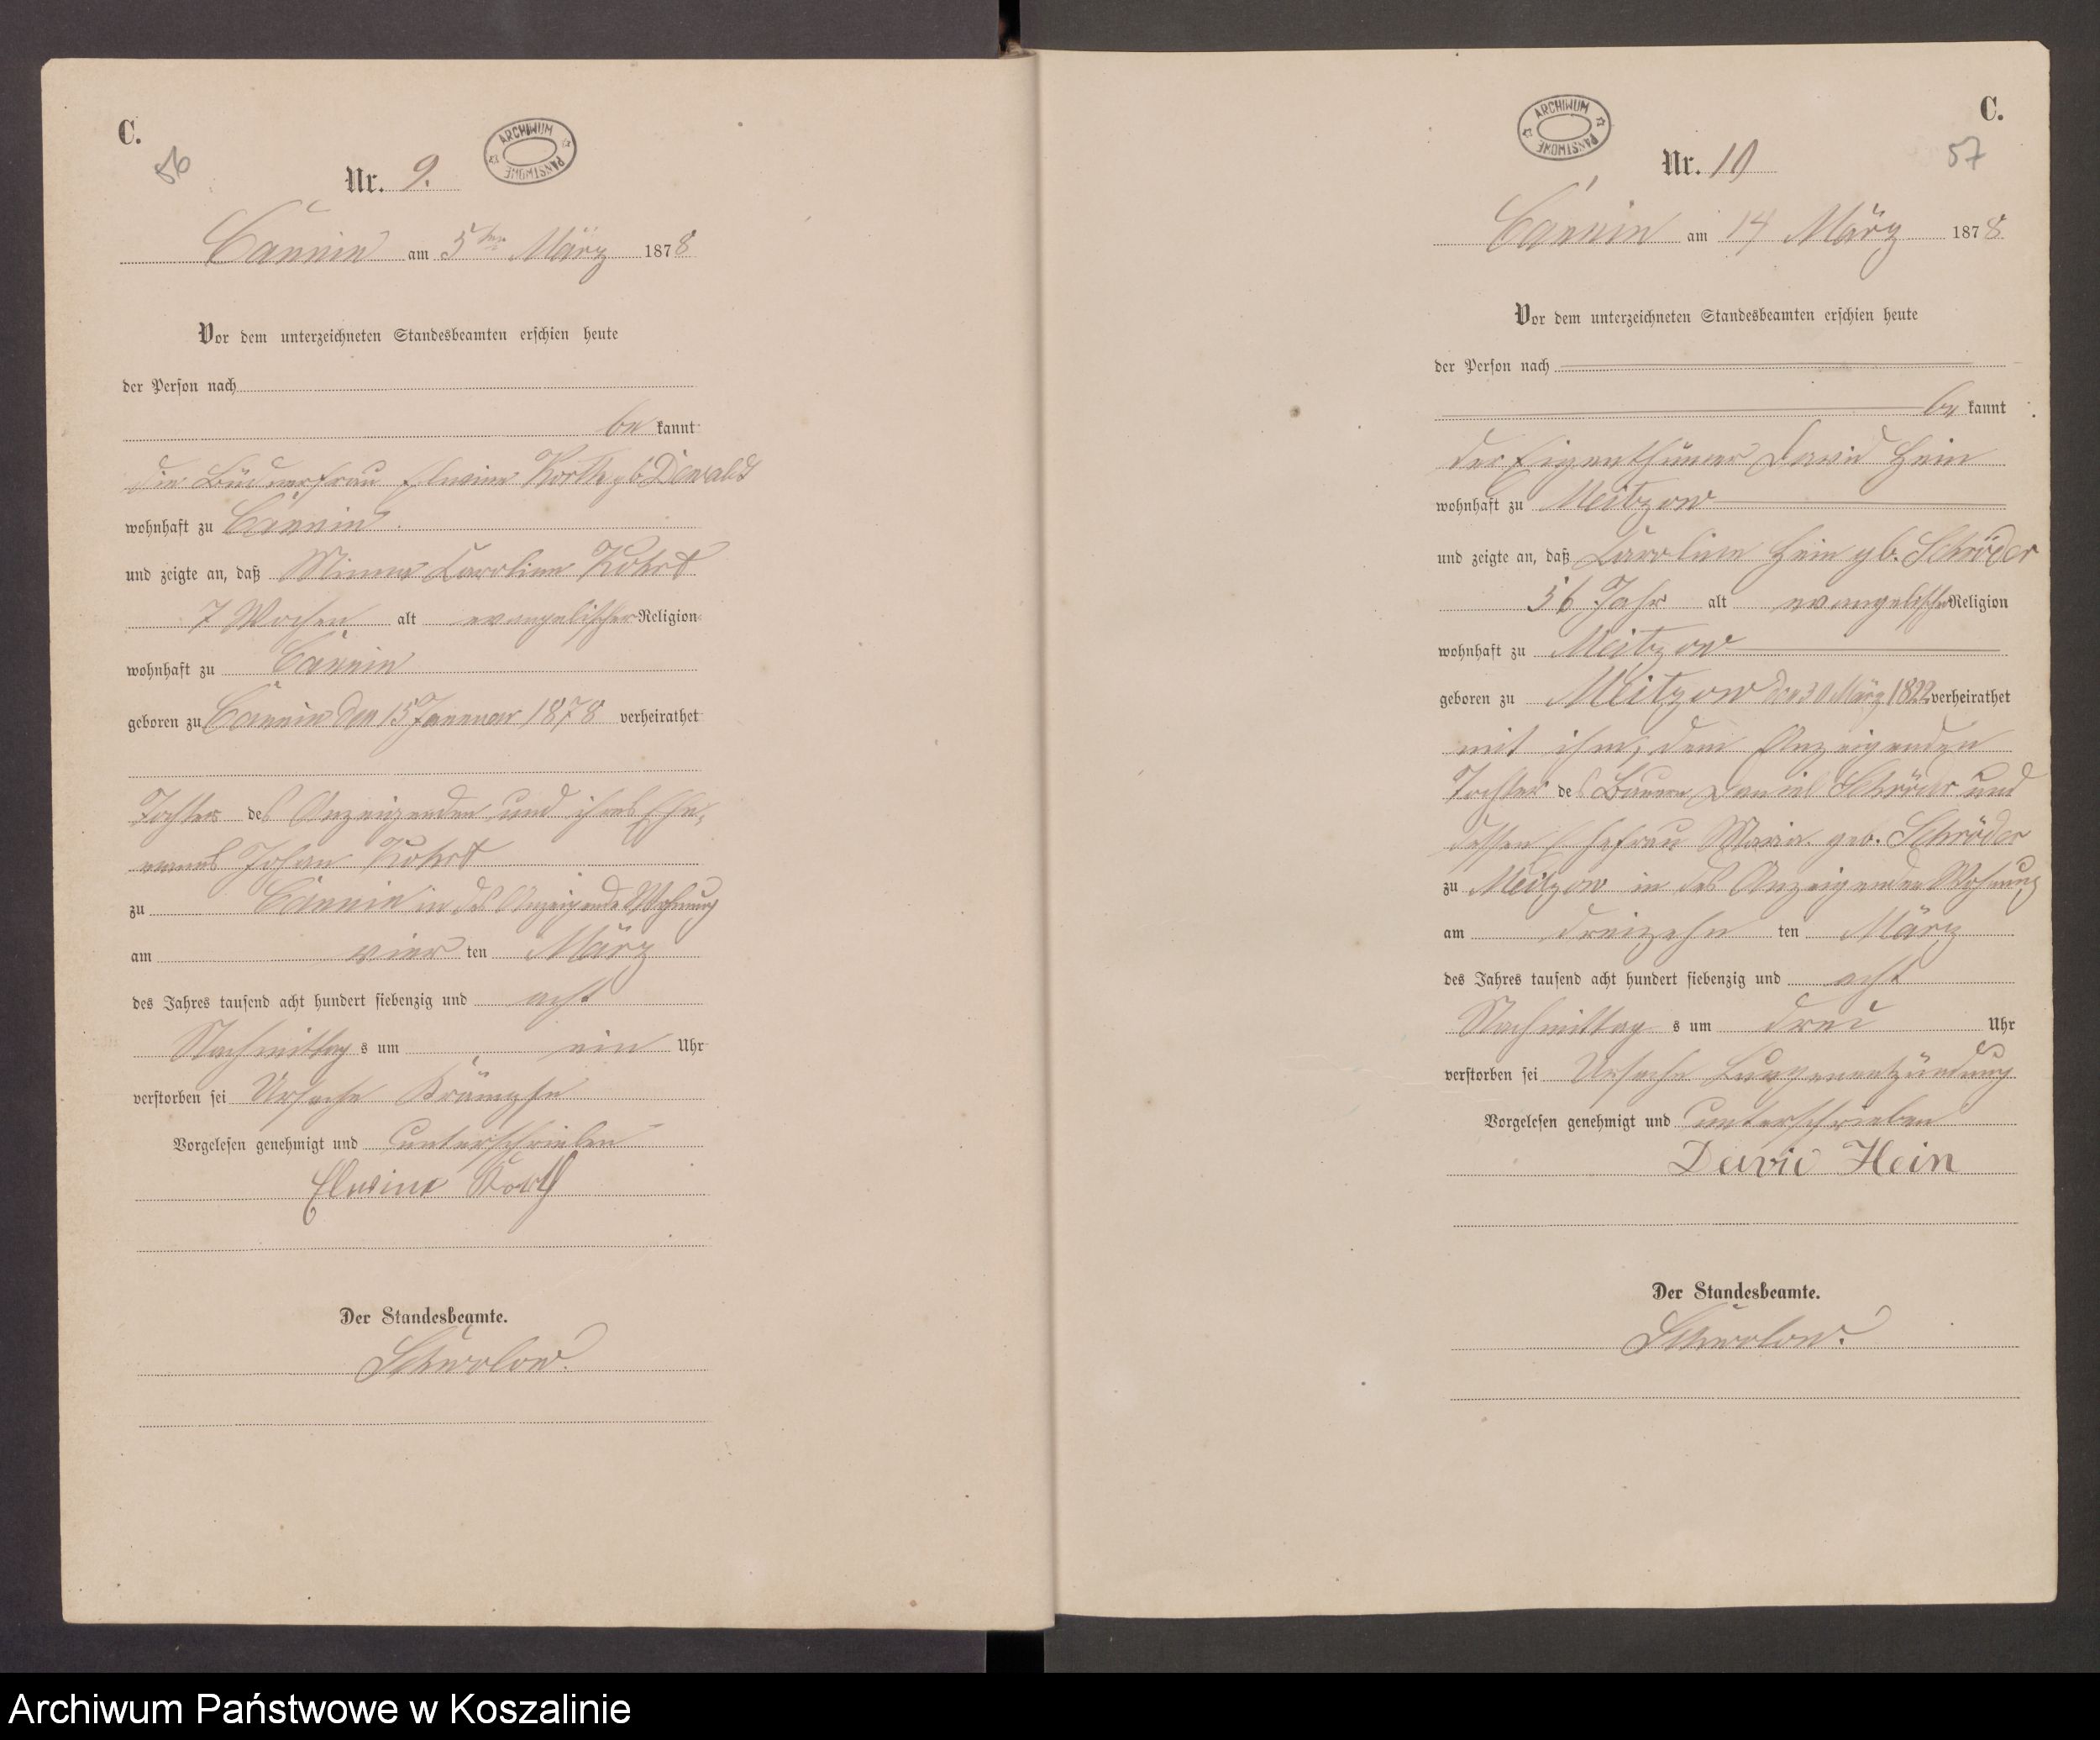 C.
56
Nr. 9.
ARCHIWUM PAŃSTWOWE
Cannin am 5ten März 1878
Vor dem unterzeichneten Standesbeamten erschien heute
der Person nach
be kannt
die Büdnerfrau Elwine Korth gb. Dewaldt
wohnhaft zu Cannin.
und zeigte an, daß Minna Caroline Kohrt
7 Wochen alt evangelischer Religion
wohnhaft zu Cannin
geboren zu Cannin den 15 Januar 1878 verheirathet
Tochter des Anzeigenden und ihres Ehe-
manns Johan Kohrt
zu Cannin in des Anzeigende Wohnung
am vier ten März
des Jahres tausend acht hundert siebenzig und acht
Nachmittag s um ein Uhr
verstorben sei Ursache Krämpfe
Vorgelesen genehmigt und unterschrieben
Elwine Korth
Der Standesbeamte.
Schwolow.
C.
57
Nr. 10
ARCHIWUM PAŃSTWOWE
Cannin am 14 März 1878
Vor dem unterzeichneten Standesbeamten erschien heute
der Person nach
be kannt
der Eigenthümer David Hein
wohnhaft zu Meitzow
und zeigte an, daß Caroline Hein gb. Schröder
56 Jahr alt evangelischer Religion
wohnhaft zu Meitzow
geboren zu Meitzow den 30 März 1822 verheirathet
mit ihm, dem Anzeigenden
Tochter des Bauern Daniel Schröder und
dessen Ehefrau Maria geb. Schröder
zu Meitzow in des Anzeigenden Wohnung
am dreizehn ten März
des Jahres tausend acht hundert siebenzig und acht
Nachmittag s um drei Uhr
verstorben sei Ursache Lungenentzündung
Vorgelesen genehmigt und unterschrieben
David Hein
Der Standesbeamte.
Schwolow.
Archiwum Państwowe w Koszalinie